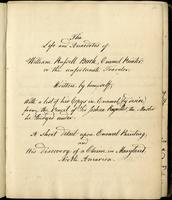 The
Life and Anecdotes of
William Russell Birch, Enamel Painter,
or the unfortunate Traveler.
Written by himself;
With a list of his Copys in Enamel by himself,
from the Pencil of Sir Joshua Reynolds, the Master
he Studyed under.
A Short Hint upon Enamel Painting,
and
His discovery of a Brown in Maryland
North America.